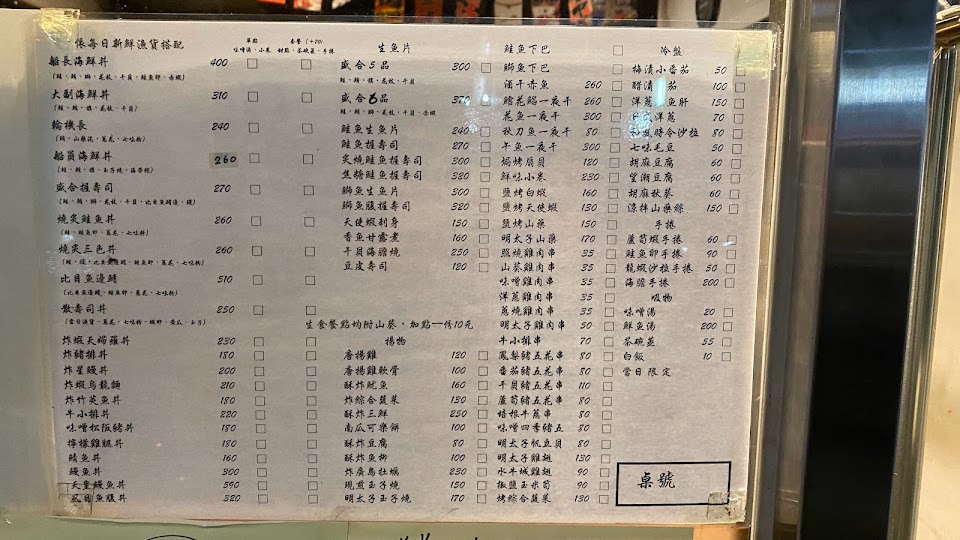 依每日新鮮漁貨搭配
單點 套餐(+70)
味噌湯、小菜 甜點、茶碗蒸、手捲
船長海鮮丼 400
大副海鮮丼 310
輪機長 240
船員海鮮丼 260
(鮭、鮪、旗、玉子燒、海帶絲)
盛合握壽司 270
燒炙鮭魚丼 260
燒炙三色丼 260
比目魚邊鰭 510
(比目魚邊鰭、鮭魚卵、蔥花、七味粉)
散壽司丼 250
炸蝦天婦羅丼 230
炸豬排丼 180
炸星鰻丼 200
炸蝦烏龍麵 210
炸竹莢魚丼 180
牛小排丼 220
味噌松阪豬丼 180
檸檬雞腿丼 180
鯖魚丼 160
鰻魚丼 300
天皇鰻魚丼 590
虱目魚腹丼 320
生魚片
盛合5品 300
盛合6品 370
鮭魚生魚片 240
鮭魚握壽司 270
炙燒鮭魚握壽司 300
焦糖鮭魚握壽司 320
鰤魚生魚片 300
鰤魚腹握壽司 320
天使蝦刺身 150
香魚甘露煮 160
干貝海膽燒 250
豆皮壽司 120
生食餐點均附山葵,加點一份10元
揚物
唐揚雞 120
唐揚雞軟骨 100
酥炸魷魚 160
炸綜合蔬菜 130
酥炸三鮮 250
南瓜可樂餅 100
酥炸豆腐 80
酥炸魚柳 100
炸廣島牡蠣 230
現煎玉子燒 150
明太子玉子燒 170
鮭魚下巴
鰤魚下巴
酒干赤魚 260
鱈花鯛一夜干 260
花魚一夜干 300
秋刀魚一夜干 80
午魚一夜干 300
焗烤扇貝 120
鮮味小卷 230
鹽烤白蝦 160
鹽烤天使蝦 130
鹽烤山藥 150
明太子山藥 170
照燒雞肉串 35
山葵雞肉串 35
味噌雞肉串 35
洋蔥雞肉串 35
蔥燒雞肉串 35
明太子雞肉串 50
牛小排串 70
鳳梨豬五花串 80
番茄豬五花串 80
干貝豬五花串 110
蘆筍豬五花串 80
培根牛蒡串 80
味噌四季豬五 80
明太子帆立貝 80
明太子雞翅 130
水牛城雞翅 90
椒鹽玉米筍 90
烤綜合蔬菜 130
冷盤
梅漬小番茄 50
醋漬 茄 100
洋蔥 魚肝 150
洋蔥 70
和風時令沙拉 80
七味毛豆 50
胡麻豆腐 60
皇潮豆腐 60
胡麻秋葵 60
涼拌山藥綜 150
手捲
蘆筍蝦手捲 60
鮭魚卵手捲 90
龍蝦沙拉手捲 50
海膽手捲 200
吸物
味噌湯 20
鮮魚湯 200
茶碗蒸 55
白飯 10
當日限定
桌號